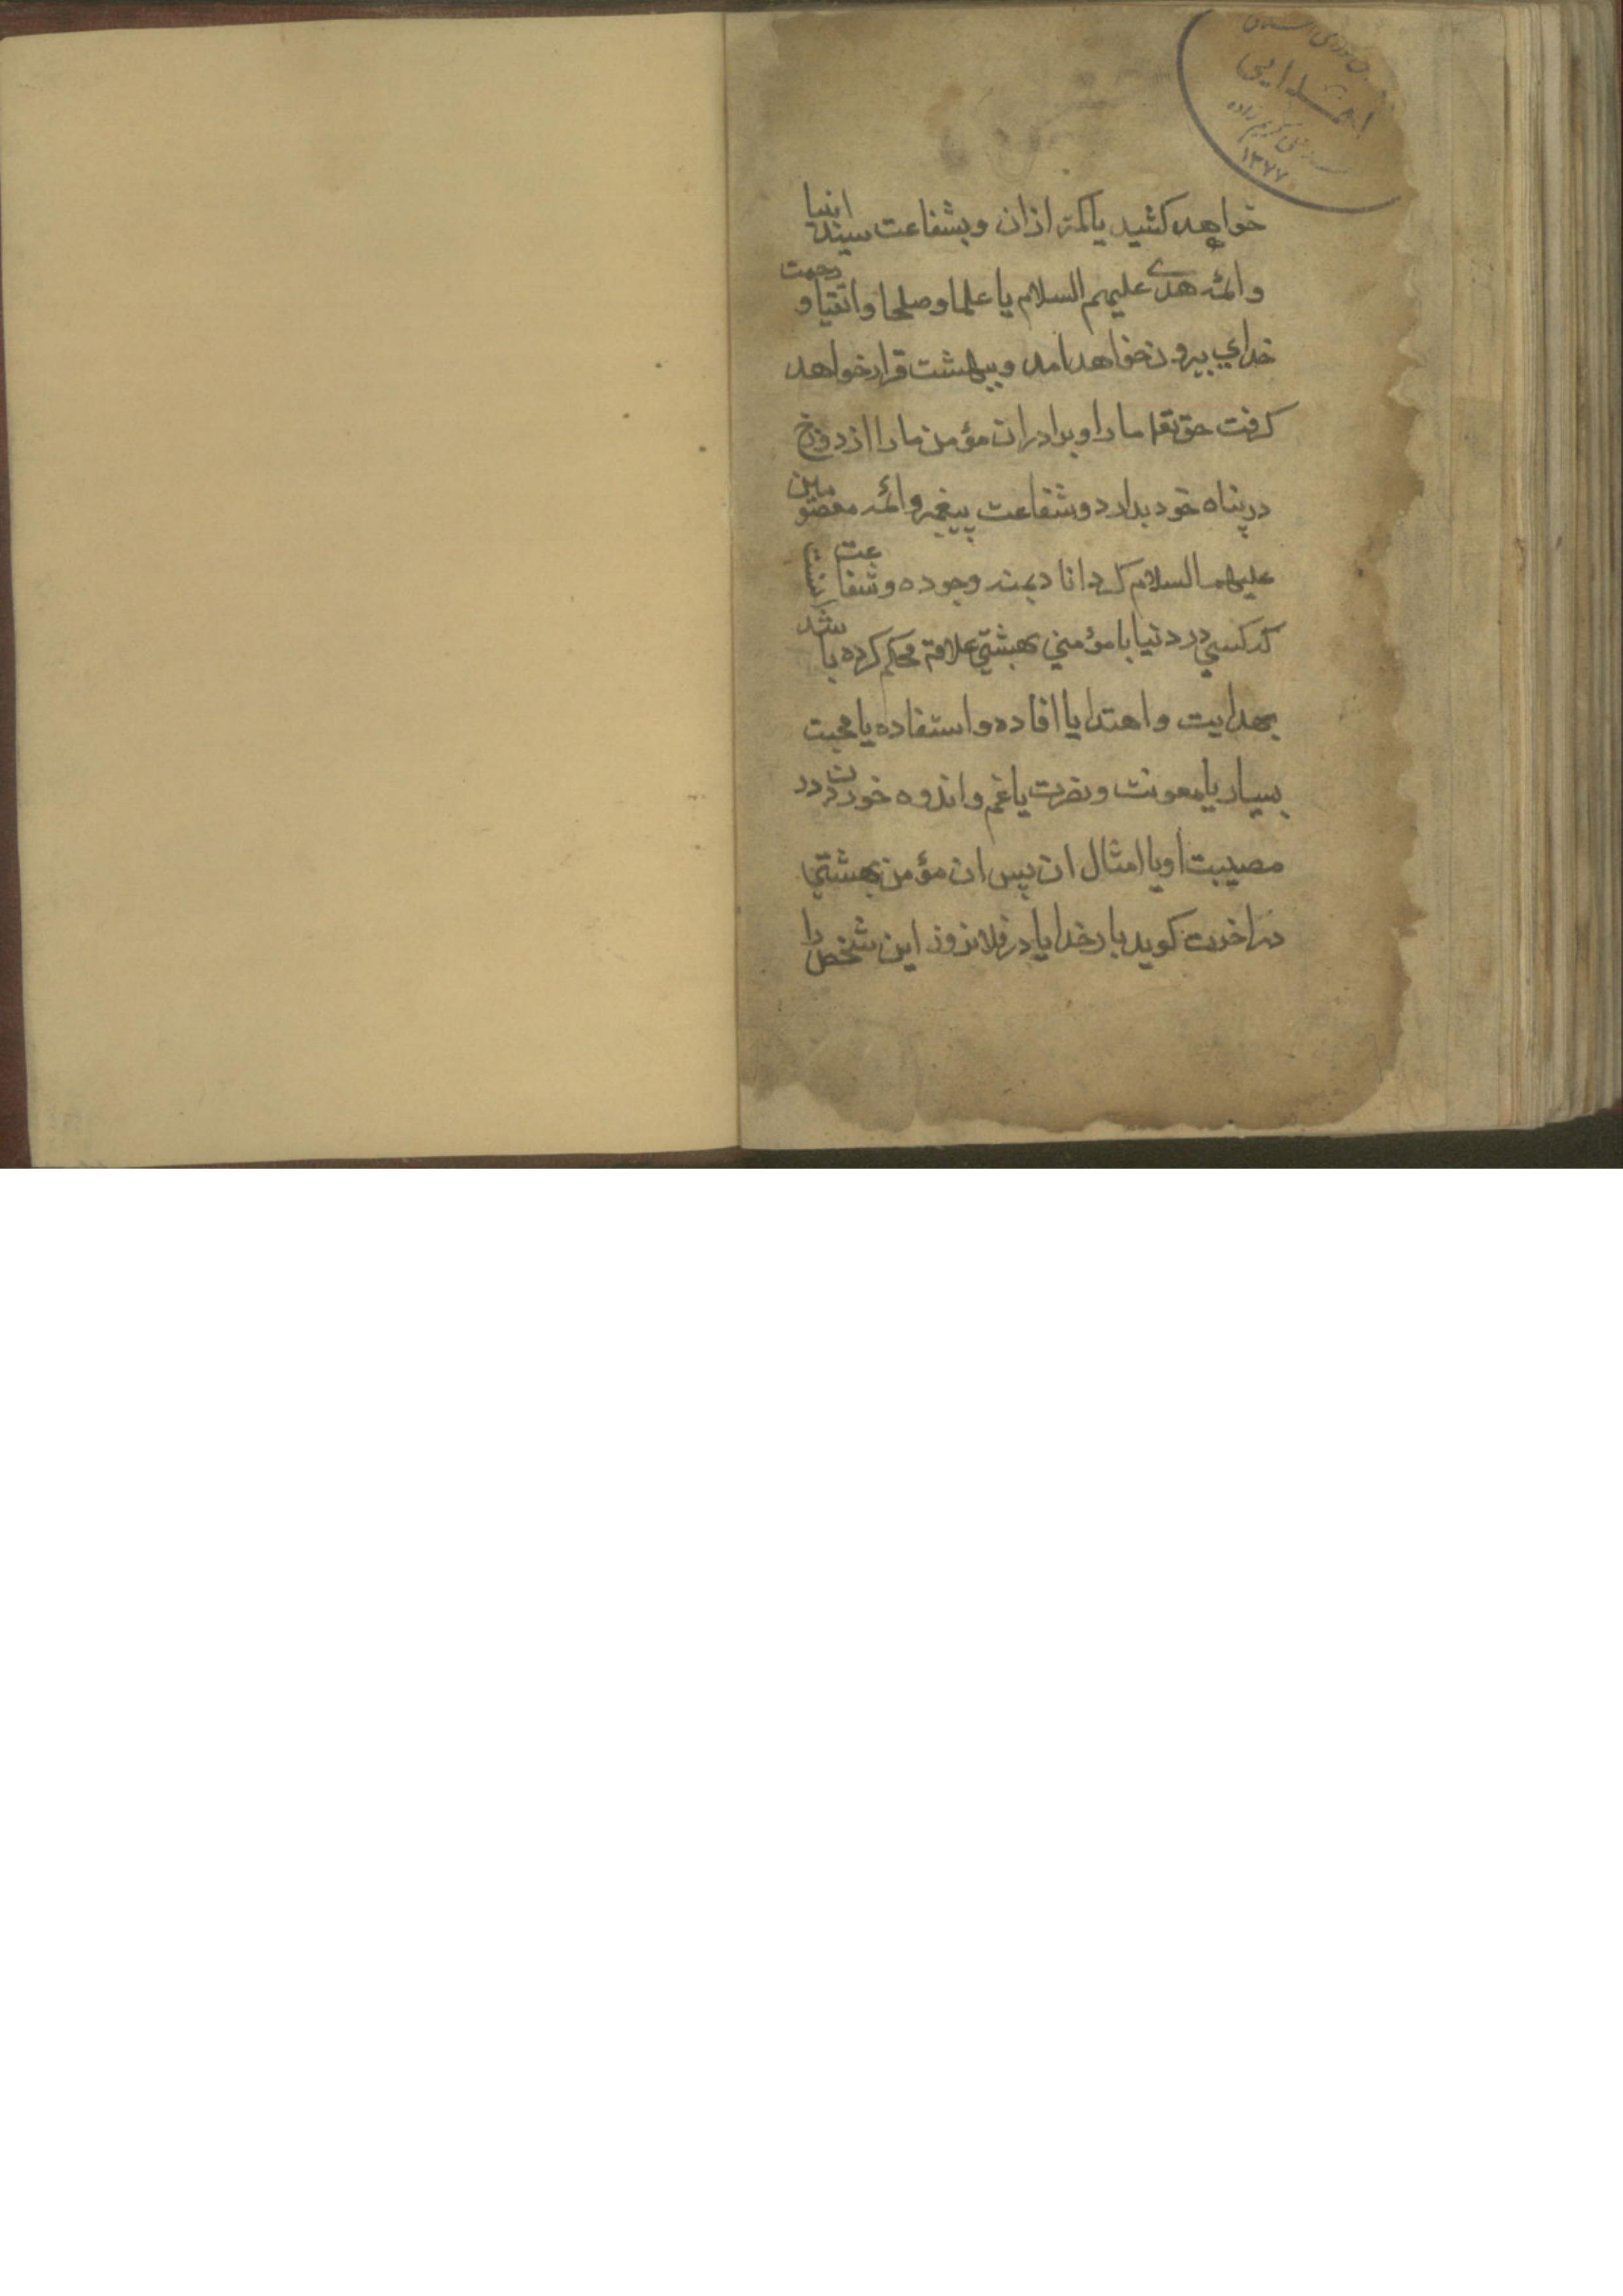 اهدایی
۱۳۷۷
خواهد کشید یا کمتر ازان و بشفاعت سید انبیا
و ائمه هدی علیهم السلام یا علما و صلحا و اتقیا و رحمت
خدای بیرون خواهد امد و ببهشت قرار خواهد
کرفت حق تعا ما را و برادران مؤمن ما را از دوزخ
در پناه خود بدارد و شفاعت پیغمبر و ائمه معصومین
علیهم السلام وجوده و شفاعت
که کسی در دنیا با مؤمنی بهشتی علاقه محکم کرده باشد
بهدایت و اهتدا یا افاده و استفاده یا محبت
بسیار یا معونت و نصرت یا غم و اندوه خوردن در
مصیبت او یا امثال ان پس ان مؤمن بهشتی
در اخرت کوید بار خدایا در فلانروز این شخص را